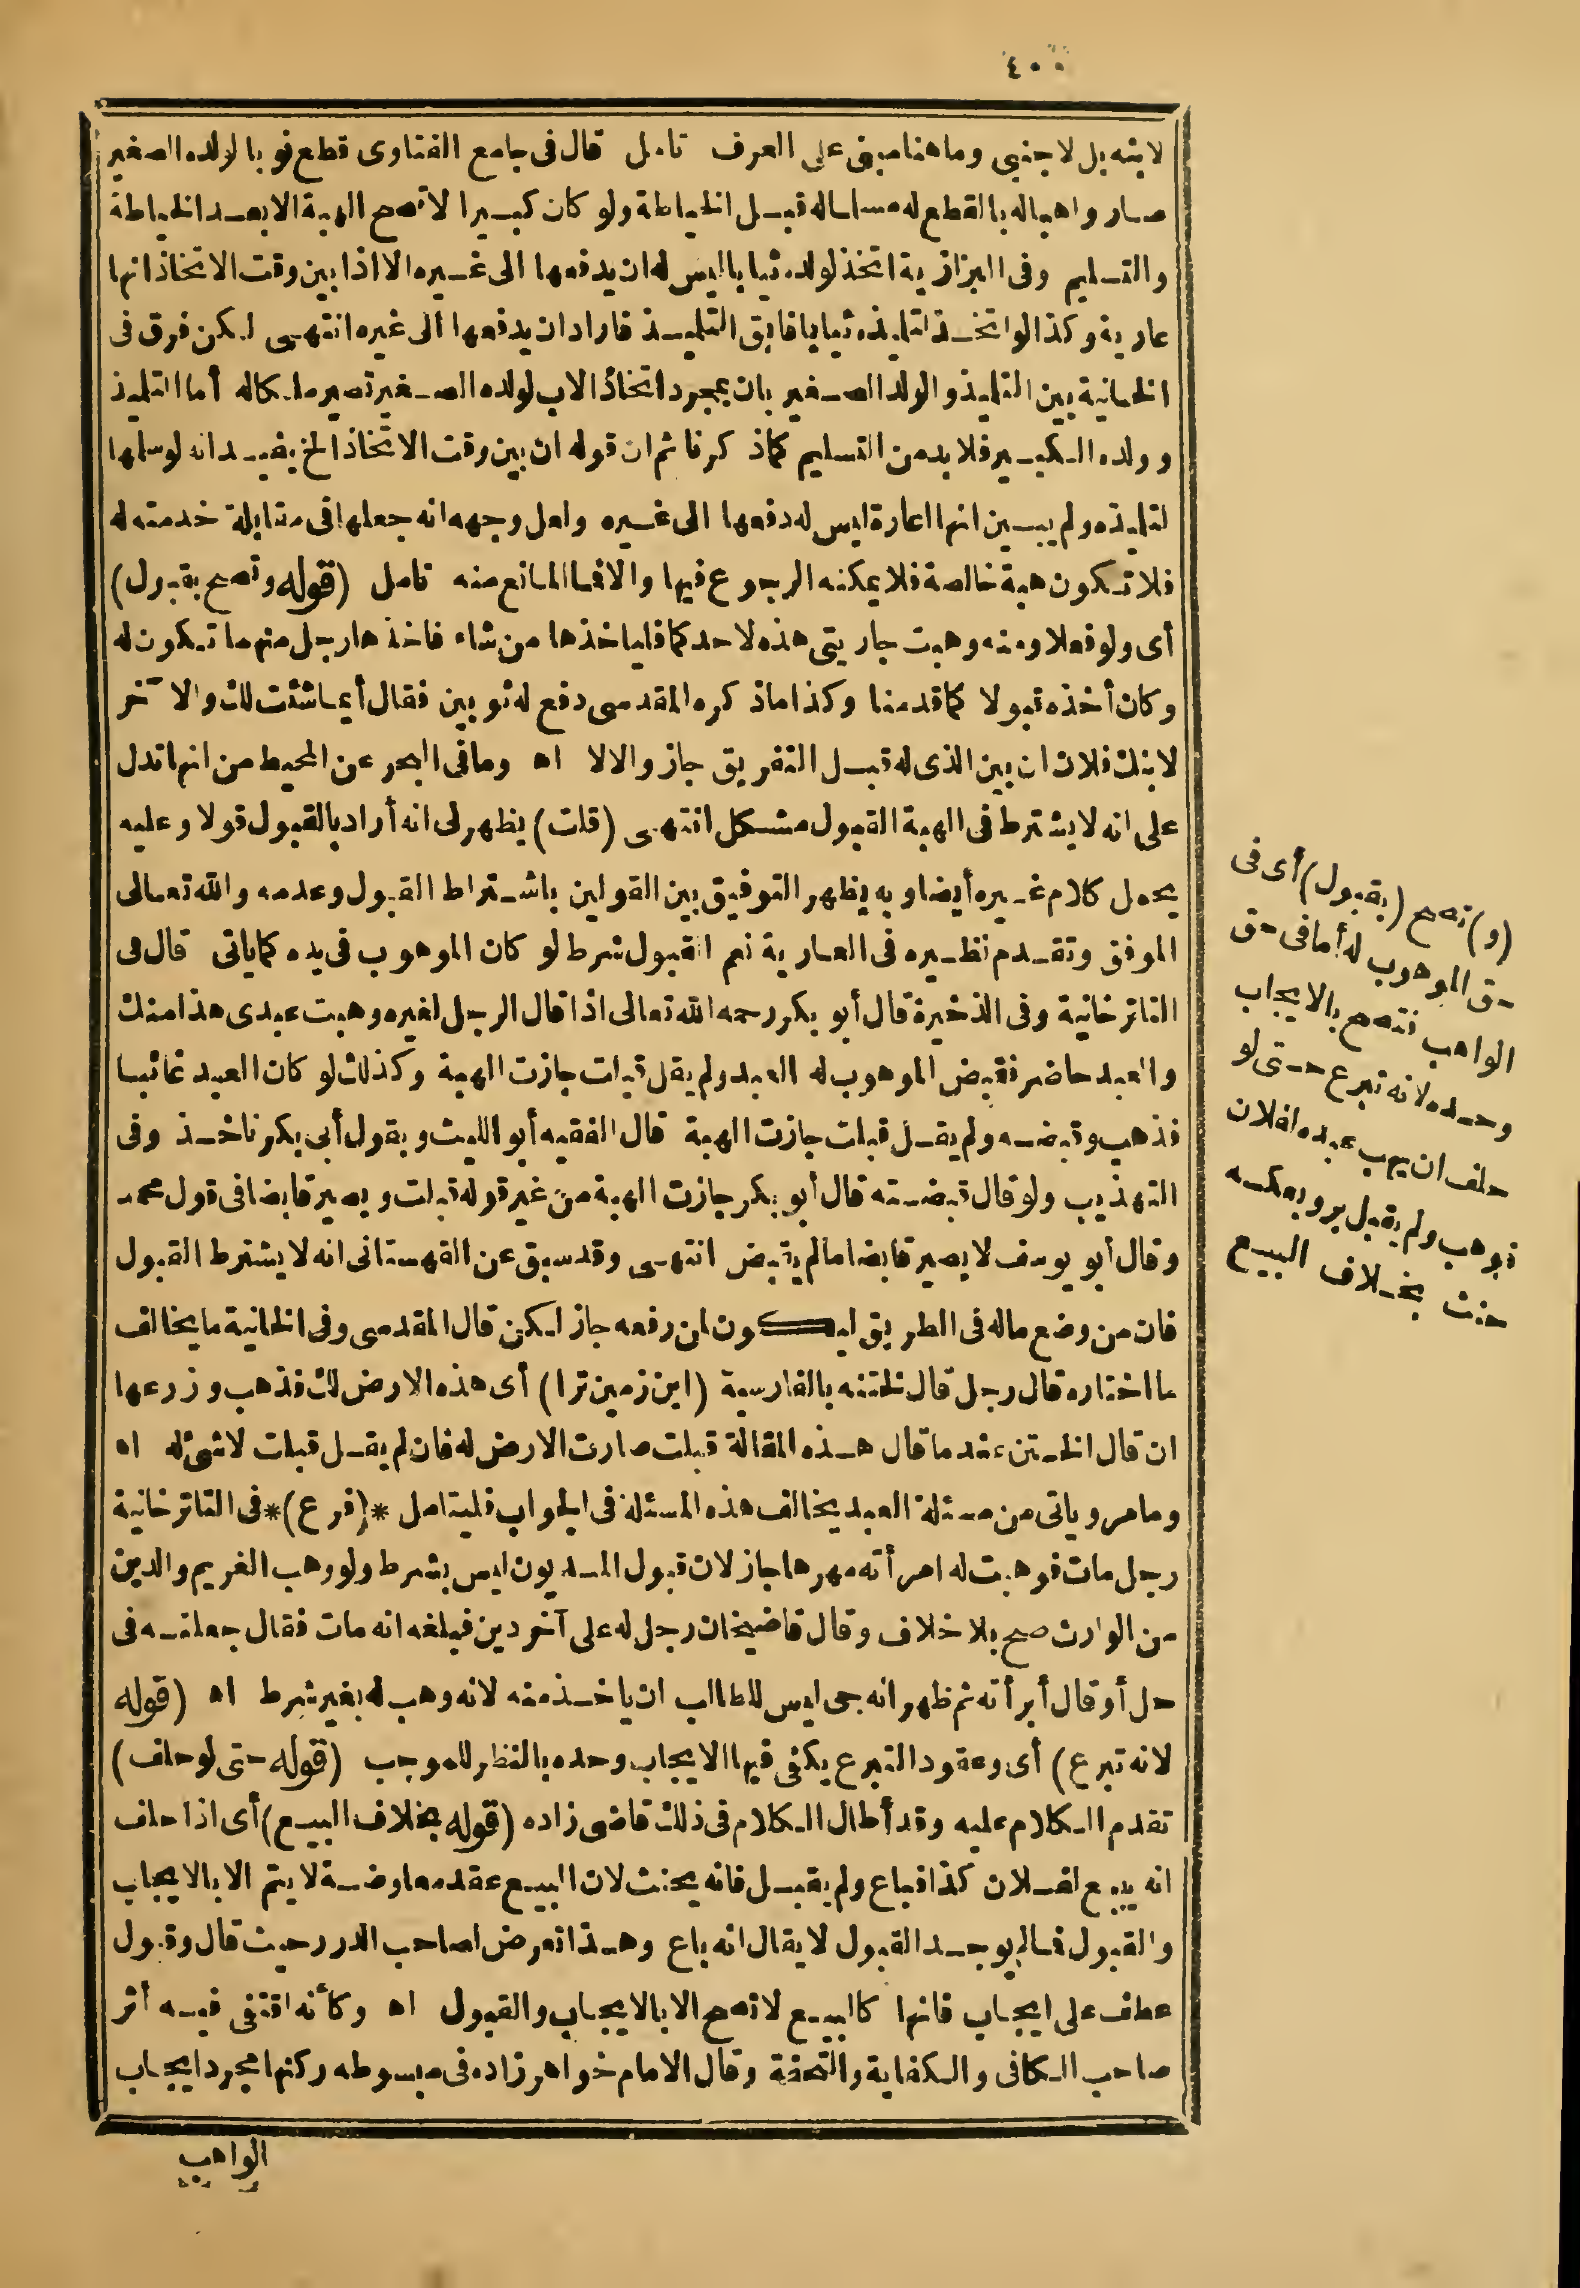 ٤٠٠
لابنه بل لاجنبى وما هنا مبنى على العرف تامل قال فى جامع الفتاوى قطع ثوبا لولده الصغير
صار واهباله بالقطع له مسلماله قبل الخياطة ولو كان كبيرا لا تصح الهبة الا بعد الخياطة
والتسليم وفى البزازية اتخذ لولده ثيابا ليس له ان يدفعها الى غيره الا اذا بين وقت الاتخاذ انها
عارية وكذا لو اتخذ لتلميذه ثيابا فابق التلميذ فاراد ان يدفعها الى غيره انتهى لكن فرق فى
الخانية بين التلميذ والولد الصغير بان بمجرد اتخاذ الاب لولده الصغير تصير ملكاله أما التلميذ
وولده الكبير فلا بد من التسليم كما ذكرنا ثم ان قوله ان بين وقت الاتخاذ الخ يفيد انه لو سلمها
لتلميذه ولم يبين انها اعارة ليس له دفعها الى غيره ولعل وجهه انه جعلها فى مقابلة خدمته له
فلا تكون هبة خالصة فلا يمكنه الرجوع فيها والا فما المانع منه تامل (قوله وتصح بقبول)
أى ولو فعلا ومنه وهبت جاريتى هذه لاحدكما فلياخذها من شاء فاخذها رجل منهما تكون له
وكان أخذه قبولا كما قدمنا وكذا ما ذكره المقدسى دفع له ثوبين فقال أيما شئت لك والآخر
لابنك فلان ان بين الذى له قبل التفريق جاز والا لا اه وما فى البحر عن المحيط من انها تدل
على انه لا يشترط فى الهبة القبول مشكل انتهى (قلت) يظهر لى انه أراد بالقبول قولا وعليه
يحمل كلام غيره أيضا وبه يظهر التوفيق بين القولين باشتراط القبول وعدمه والله تعالى
الموفق وتقدم نظيره فى العارية نعم القبول شرط لو كان الموهوب فى يده كما ياتى قال فى
التاترخانية وفى الذخيرة قال أبو بكر رحمه الله تعالى اذا قال الرجل لغيره وهبت عبدى هذا منك
والعبد حاضر فقبض الموهوب له العبد ولم يقل قبلت جازت الهبة وكذلك لو كان العبد غائبا
فذهب وقبضه ولم يقل قبلت جازت الهبة قال الفقيه أبو الليث وبقول أبى بكر ناخذ وفى
التهذيب ولو قال قبضته قال أبو بكر جازت الهبة من غير قوله قبلت ويصير قابضا فى قول محمد
وقال أبو يوسف لا يصير قابضا ما لم يقبض انتهى وقد سبق عن القهستانى انه لا يشترط القبول
فان من وضع ماله فى الطريق ليكون لمن رفعه جاز لكن قال المقدسى وفى الخانية ما يخالف
ما اختاره قال رجل قال لختنه بالفارسية (اين زمين ترا) أى هذه الارض لك فذهب وزرعها
ان قال الختن عندما قال هذه المقالة قبلت صارت الارض له فان لم يقل قبلت لا شئ له اه
وما مر وياتى من مسئلة العبد يخالف هذه المسئلة فى الجواب فليتامل *(فرع)* فى التاترخانية
رجل مات فوهبت له امرأته مهرها جاز لان قبول المديون ليس بشرط ولو وهب الغريم والدين
من الوارث صح بلا خلاف وقال قاضيخان رجل له على آخر دين فبلغه انه مات فقال جعلته فى
حل أو قال أبرأته ثم ظهر انه حى ليس للطالب ان ياخذ منه لانه وهب له بغير شرط اه (قوله
لانه تبرع) أى وعقود التبرع يكفى فيها الايجاب وحده بالنظر للموجب (قوله حتى لو حلف)
تقدم الكلام عليه وقد أطال الكلام فى ذلك قاضى زاده (قوله بخلاف البيع) أى اذا حلف
انه يبيع لفلان كذا فباع ولم يقبل فانه يحنث لان البيع عقد معاوضة لا يتم الا بالايجاب
والقبول فما لم يوجد القبول لا يقال انه باع وهذا تعرض لصاحب الدرر حيث قال وقبول
عطف على ايجاب فانها كالبيع لا تصح الا بالايجاب والقبول اه وكأنه اقتفى فيه أثر
صاحب الكافى والكفاية والتحفة وقال الامام خواهر زاده فى مبسوطه ركنها مجرد ايجاب
الواهب
(و) تصح (بقبول) أى فى
حق الموهوب له أما فى حق
الواهب فتصح بالايجاب
وحده لانه تبرع حتى لو
حلف ان يهب عبده لفلان
فوهب ولم يقبل بر وبعكسه
حنث بخلاف البيع